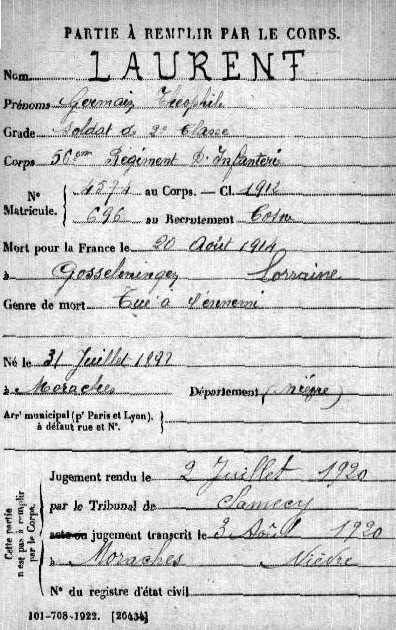 PARTIE À REMPLIR PAR LE CORPS.
Nom LAURENT
Prénoms Germain Théophile
Grade Soldat de 2e Classe
Corps 56em Régiment D'Infanterie
N° Matricule. 4574 au Corps. — Cl. 1912
696 au Recrutement Cosne
Mort pour la France le 20 Août 1914
à Gosselmingen Lorraine
Genre de mort Tué à l'ennemi
Né le 31 Juillet 1892
à Moraches Département (Nièvre)
Arr^t municipal (p^r Paris et Lyon),
à défaut rue et N°.
Cette partie n'est pas à remplir par le Corps.
Jugement rendu le 2 Juillet 1920
par le Tribunal de Clamecy
acte ou jugement transcrit le 3 Août 1920
à Moraches Nièvre
N° du registre d'état civil
101-708-1922. [26434]